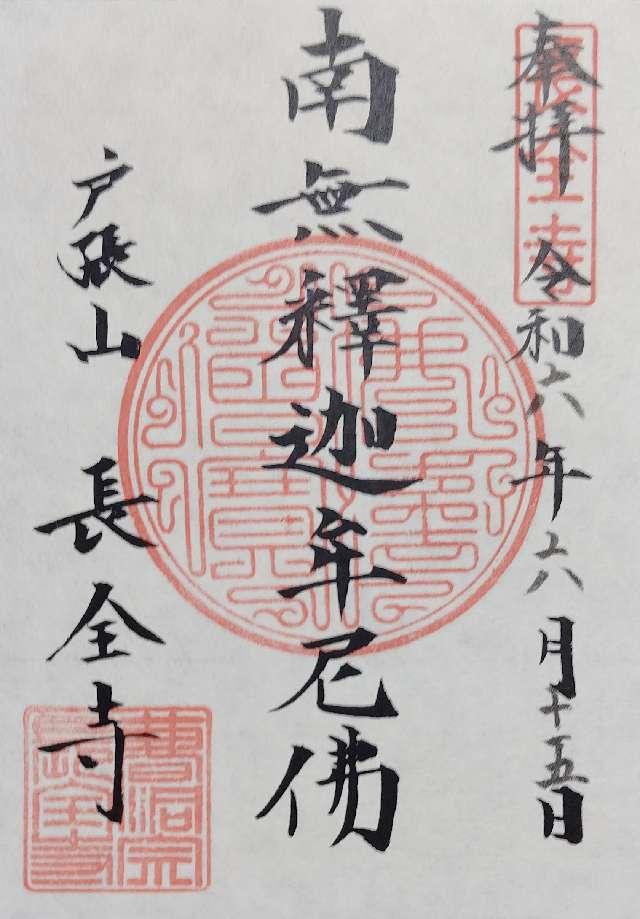 奉拝 令和六年六月十五日
南無釋迦牟尼佛
戸張山 長全寺
長全寺